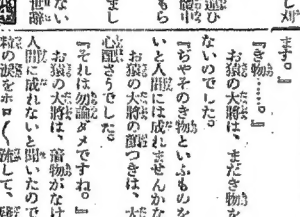 し刈
違ひ
もら
まし
ない
世辞
ます。』
『き物……。』
お猿の大將は、まだき物を
ないのでした。
『ぢやそのき物といふものを
いと人間には成れませんかな
お猿の大將の顔つきは、大
心配さうでした。
『それは勿論ダメですね。』
お猿の大將は、着物がなけ
人間に成れないと聞いたので
粒の涙をホロ〳〵流して、